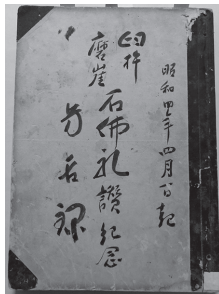 昭和四年四月八日起
臼杵
磨崖
石佛礼讃紀念
芳名録